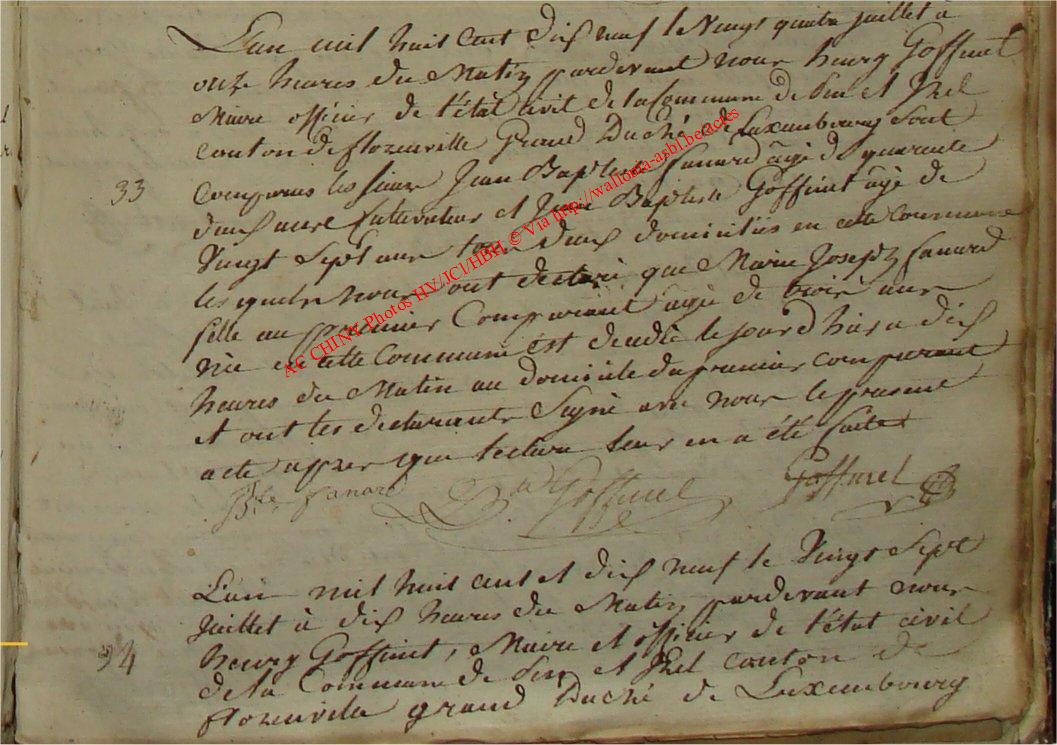 L'an mil huit cent dix neuf le Vingt quatre juillet à
onze heures du Matin pardevant nous henry Goffinet
Maire officier de l'état civil de la Commune de et Izel
canton de florenville Grand Duché de Luxembourg Sont
33
comparus les sieurs Jean Baptiste fanard âgé de quarante
deux ans Cultivateur et Jean Baptiste Goffinet âgé de
Vingt Sept ans tous deux domiciliés en cette commune
lesquels nous ont declaré que Marie Joseph fanard
fille au premier Comparant âgée de trois ans
née en cette Commune est decedée le jourd'hier a dix
heures du Matin au domicile du premier comparant
et ont les declarants Signé avec nous le present
acte apres que lecture leur en a été faite
fanard Goffinet Goffinet
L'an mil huit cent et dix neuf le Vingt Sept
Juillet à dix heures du Matin pardevant nous
henry Goffinet, Maire et officier de l'état civil
34
de la Commune de et Izel canton de
florenville grand Duché de Luxembourg
AC CHINY Photos HV/JCl/HBH © Via http://wallonia-asbl.be/actes